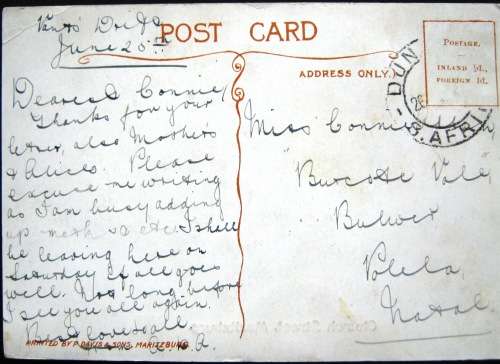 POST CARD
Vants Drift
June 20th
Dearest Connie,
Thanks for your
letter, also Mother's
& Alice's. Please
excuse me writing
as I am busy adding
up etc. I shall
be leaving here on
Saturday if all goes
well. Not long before
I see you all again.
Best love to all
PRINTED BY P. DAVIS & SONS, MARITZBURG.
ADDRESS ONLY.
POSTAGE.
INLAND ½d.,
FOREIGN 1d.
DUN
S. AFRI
Miss Connie
Vale
Bulwer
Polela
Natal